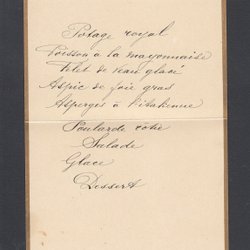 Potage royal
Poisson à la mayonnaise
Filet de veau glacé
Aspic de foie gras
Asperges à l'italienne
Poularde rotie
Salade
Glace
Dessert